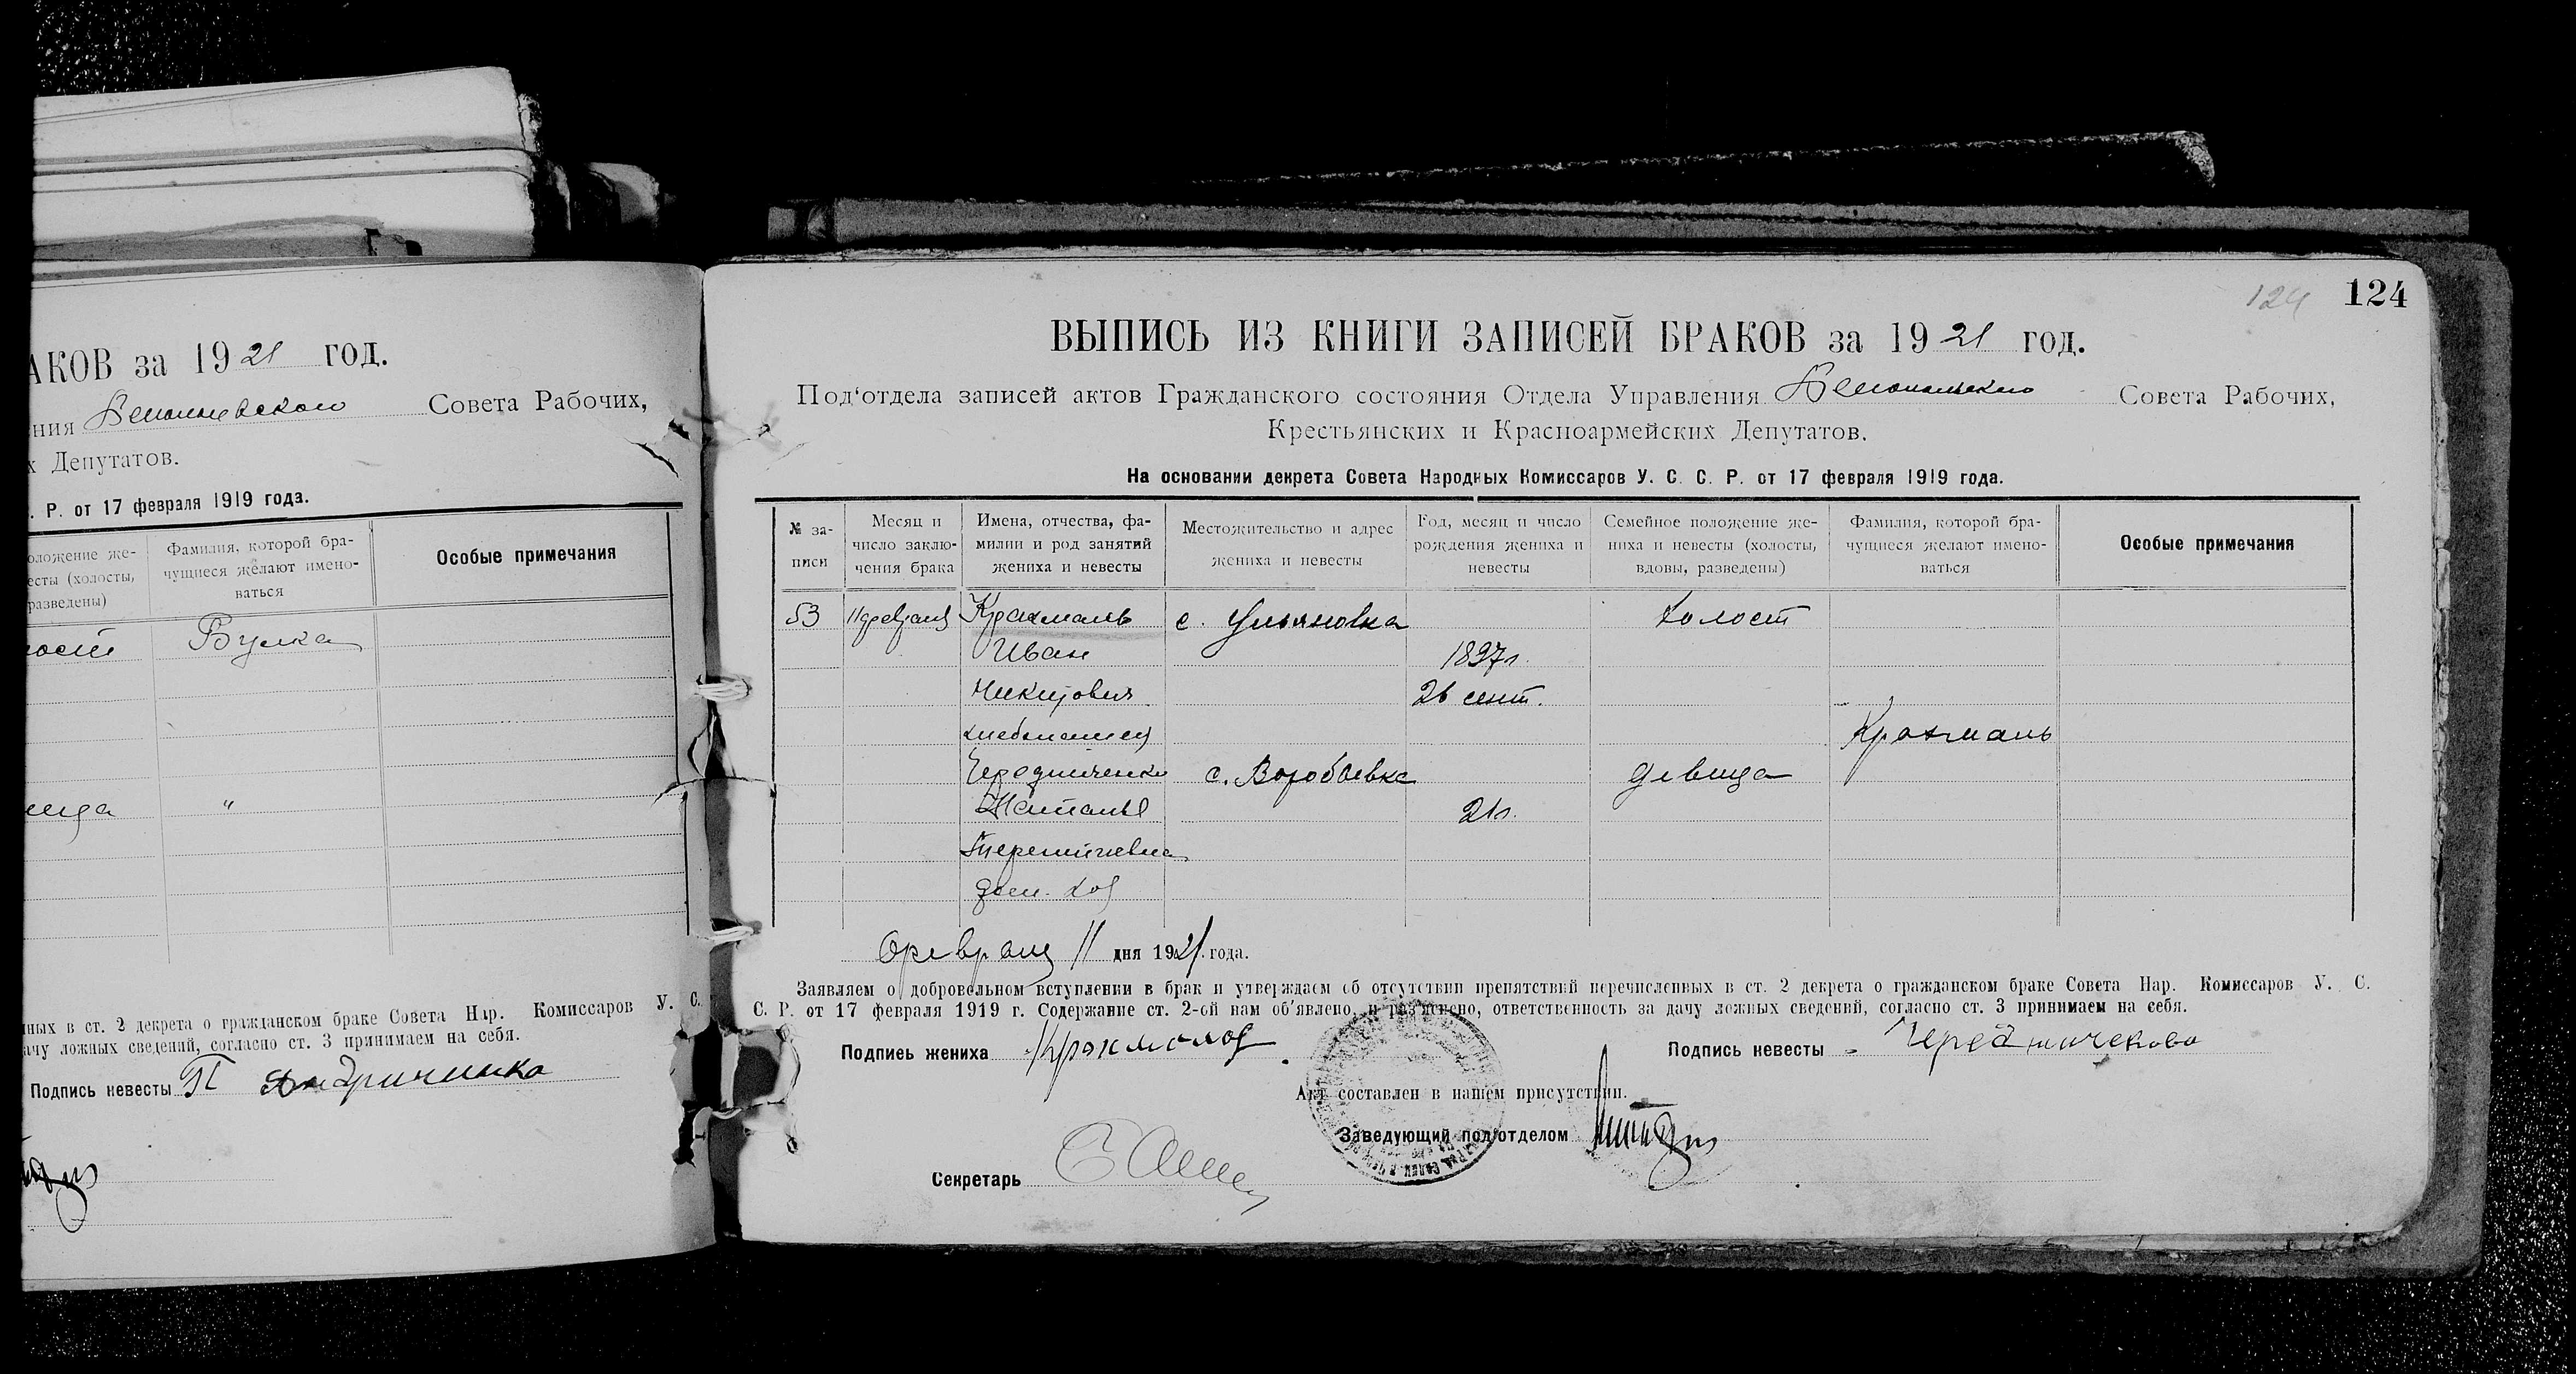 АКОВ за 1921 год.
ния Совета Рабочих,
х Депутатов.
. Р. от 17 февраля 1919 года.
оложение же-
есты (холосты,
разведены)
Фамилия, которой бра-
чущиеся желают имено-
ваться
Особые примечания
ост Булка
ица "
нных в ст. 2 декрета о гражданском браке Совета Нар. Комиссаров У. С.
ачу ложных сведений, согласно ст. 3 принимаем на себя.
Подпись невесты
124
124
ВЫПИСЬ ИЗ КНИГИ ЗАПИСЕЙ БРАКОВ за 1921 год.
Под'отдела записей актов Гражданского состояния Отдела Управления Совета Рабочих,
Крестьянских и Красноармейских Депутатов.
На основании декрета Совета Народных Комиссаров У. С. С. Р. от 17 февраля 1919 года.
№ за-
писи
Месяц и
число заклю-
чения брака
Имена, отчества, фа-
милии и род занятий
жениха и невесты
Местожительство и адрес
жениха и невесты
Год, месяц и число
рождения жениха и
невесты
Семейное положение же-
ниха и невесты (холосты,
вдовы, разведены)
Фамилия, которой бра-
чущиеся желают имено-
ваться
Особые примечания
53 11 февраля Крахмаль с. Ульяновка холост
Иван 1897 г.
Никитович 26 сент.
хлебопашец Крахмаль
Чередниченко с. Воробьевка девица
Наталья 21 г.
Терентиевна
дом. хоз
Февраля 11 дня 1921 года.
Заявляем о добровольном вступлении в брак и утверждаем об отсутствии препятствий перечисленных в ст. 2 декрета о гражданском браке Совета Нар. Комиссаров У. С.
С. Р. от 17 февраля 1919 г. Содержание ст. 2-ой нам об'явлено, и раз'яснено, ответственность за дачу ложных сведений, согласно ст. 3 принимаем на себя.
Подпись жениха Подпись невесты
Акт составлен в нашем присутствии.
Заведующий под'отделом
Секретарь